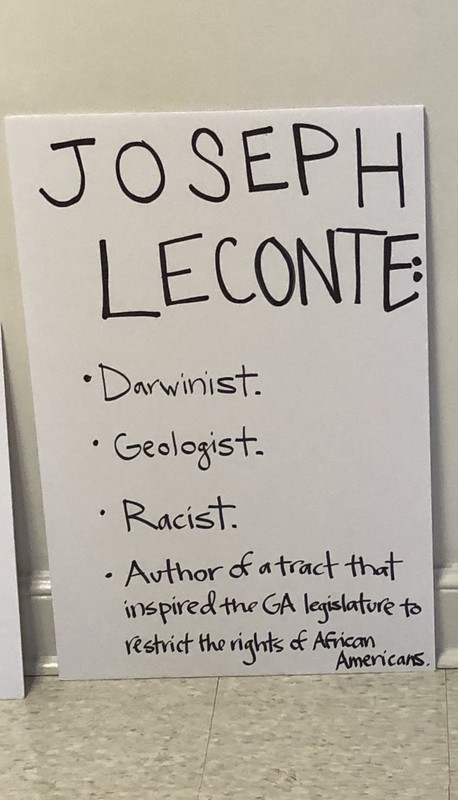 JOSEPH
LECONTE:
• Darwinist.
• Geologist.
• Racist.
• Author of a tract that
inspired the GA legislature to
restrict the rights of African
Americans.